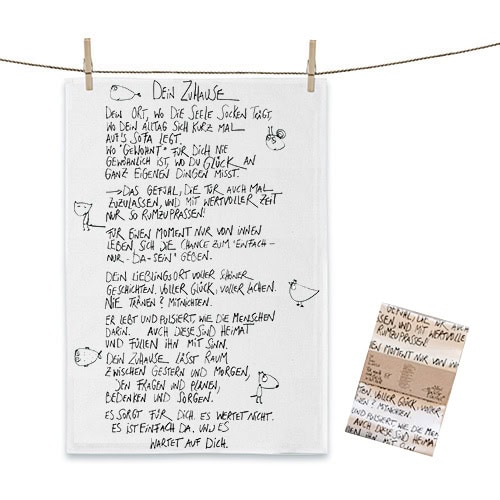 DEIN ZUHAUSE
DEIN ORT, WO DIE SEELE SOCKEN TRÄGT,
WO DEIN ALLTAG SICH KURZ MAL
AUF'S SOFA LEGT.
WO "GEWOHNT" FÜR DICH NIE
GEWÖHNLICH IST, WO DU GLÜCK AN
GANZ EIGENEN DINGEN MISST.
→ DAS GEFÜHL, DIE TÜR AUCH MAL
ZUZULASSEN, UND MIT WERTVOLLER ZEIT
NUR SO RUMZUPRASSEN!
FÜR EINEN MOMENT NUR VON INNEN
LEBEN, SICH DIE CHANCE ZUM "EINFACH-
NUR-DA-SEIN" GEBEN.
DEIN LIEBLINGSORT VOLLER SCHÖNER
GESCHICHTEN. VOLLER GLÜCK, VOLLER LACHEN.
NIE TRÄNEN? MITNICHTEN.
ER LEBT UND PULSIERT, WIE DIE MENSCHEN
DARIN. AUCH DIESE SIND HEIMAT
UND FÜLLEN IHN MIT SINN.
DEIN ZUHAUSE LÄSST RAUM
ZWISCHEN GESTERN UND MORGEN,
DEN FRAGEN UND PLÄNEN,
BEDENKEN UND SORGEN.
ES SORGT FÜR DICH. ES WERTET NICHT.
ES IST EINFACH DA. UND ES
WARTET AUF DICH.
DIE TÜR AUCH
SSEN, UND MIT WERTVOLLE
RUMZUPRASSEN!
EN MOMENT NUR VON INN
VOLLER GLÜCK, VOLLER
N? MITNICHTEN.
UND PULSIERT, WIE DIE ME
AUCH DIESE SIND HEIMAT
EN IHN MIT SINN.